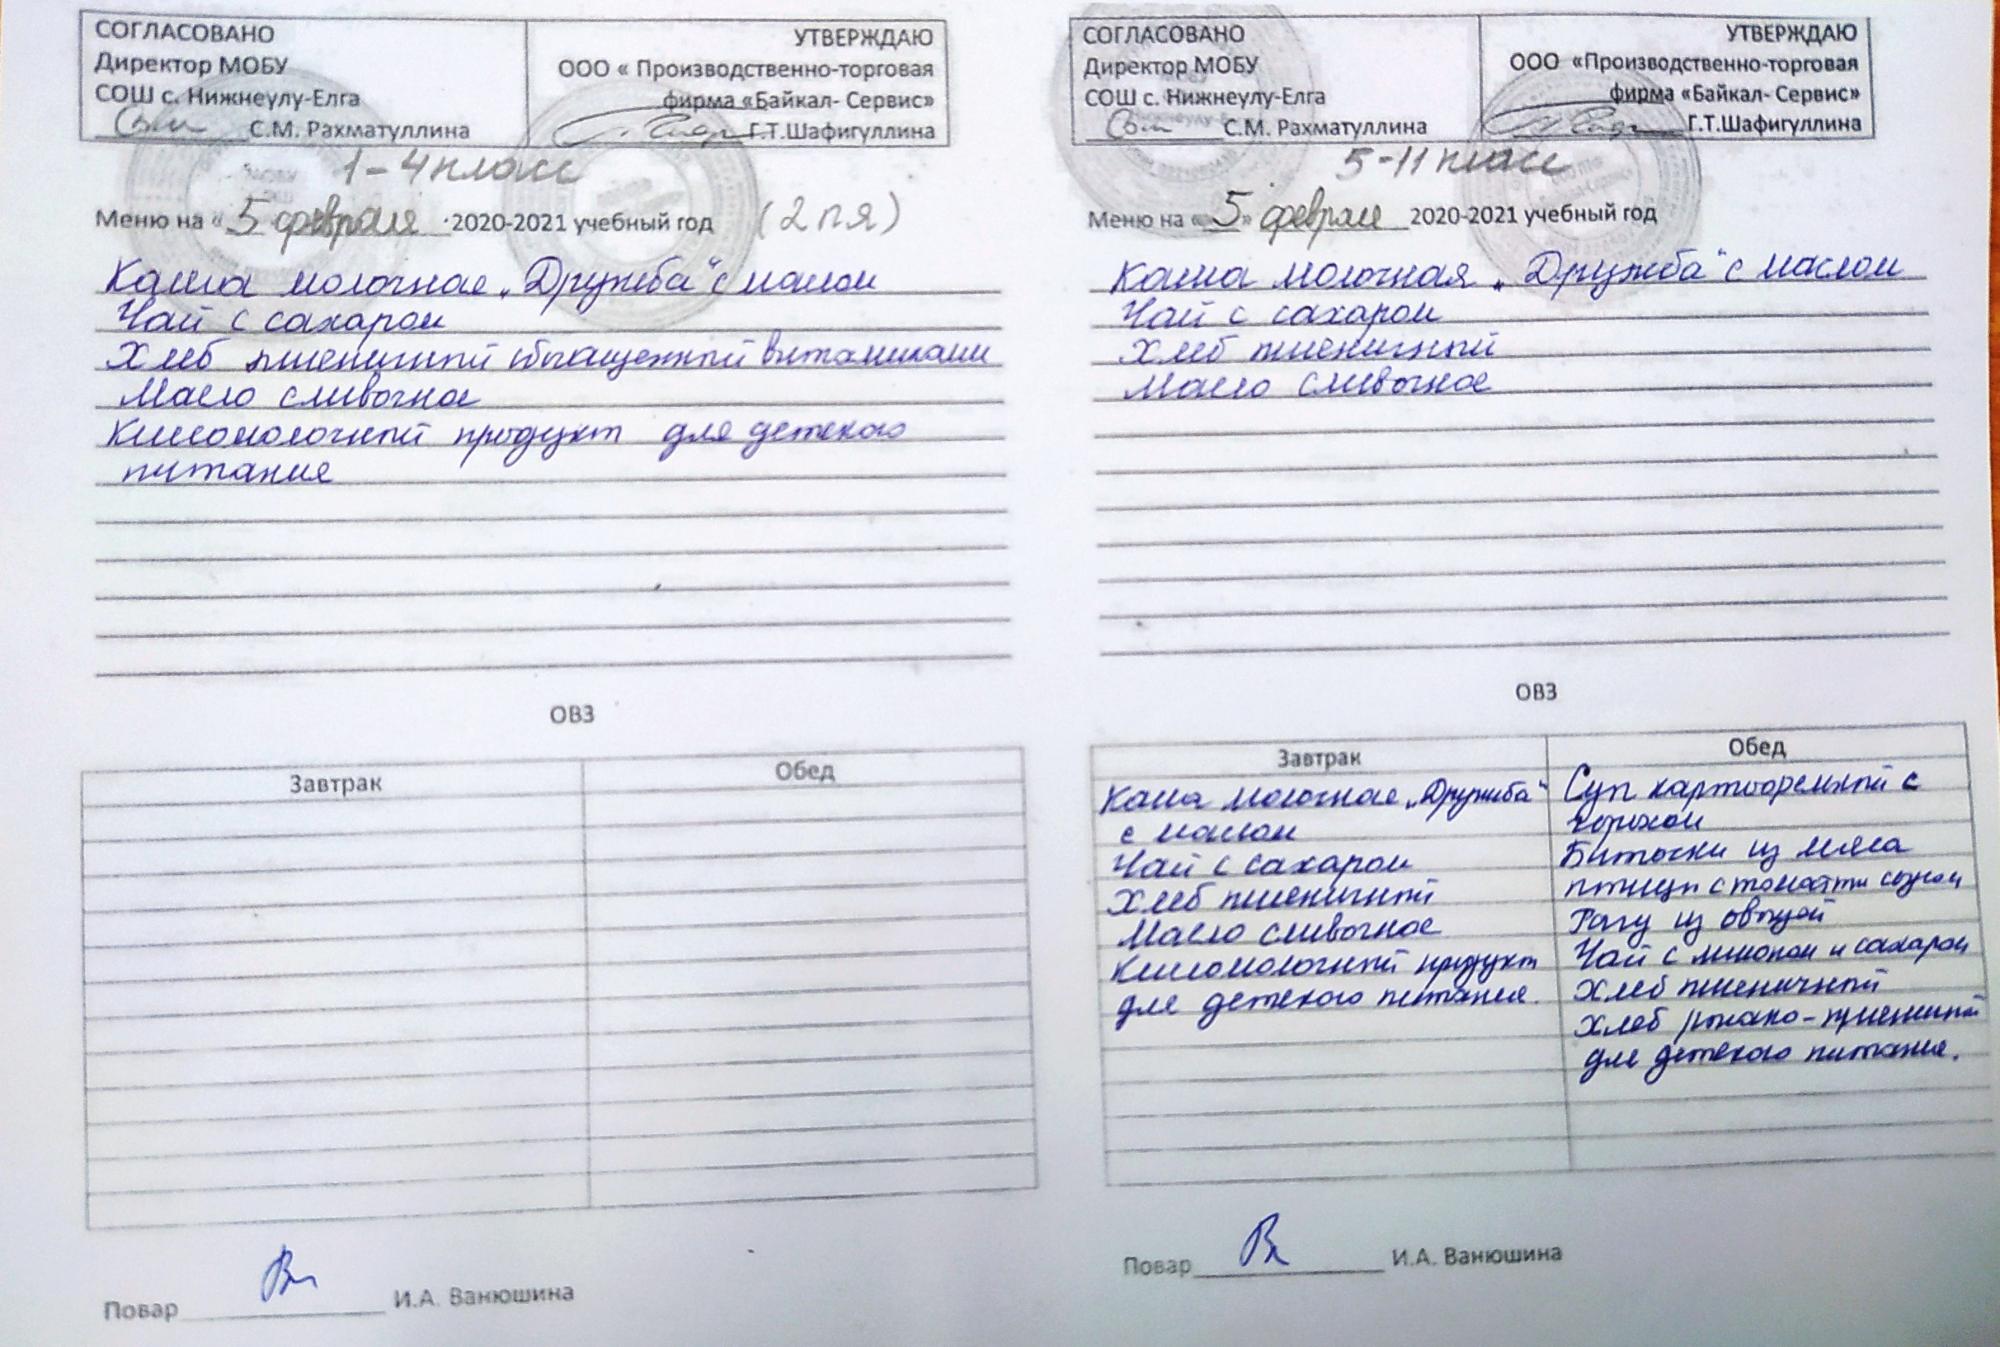 СОГЛАСОВАНО
Директор МОБУ
СОШ с. Нижнеулу-Елга
С.М. Рахматуллина
УТВЕРЖДАЮ
ООО « Производственно-торговая
фирма «Байкал- Сервис»
Г.Т.Шафигуллина
1-4 класс
Меню на « 5 февраля 2020-2021 учебный год (2 пя)
Каша молочная „Дружба“ с маслом
Чай с сахаром
Хлеб пшеничный обогащенный витаминами
Масло сливочное
Кисломолочный продукт для детского
питания
ОВЗ
Завтрак
Обед
Повар И.А. Ванюшина
СОГЛАСОВАНО
Директор МОБУ
СОШ с. Нижнеулу-Елга
С.М. Рахматуллина
УТВЕРЖДАЮ
ООО «Производственно-торговая
фирма «Байкал- Сервис»
Г.Т.Шафигуллина
5-11 класс
Меню на « 5» февраля 2020-2021 учебный год
Каша молочная „Дружба“ с маслом
Чай с сахаром
Хлеб пшеничный
Масло сливочное
ОВЗ
Завтрак
Каша молочная „Дружба“
с маслом
Чай с сахаром
Хлеб пшеничный
Масло сливочное
Кисломолочный продукт
для детского питания.
Обед
Суп картофельный с
горохом
Биточки из мяса
птицы с томатным соусом
Рагу из овощей
Чай с лимоном и сахаром
Хлеб пшеничный
Хлеб ржано-пшеничный
для детского питания.
Повар И.А. Ванюшина